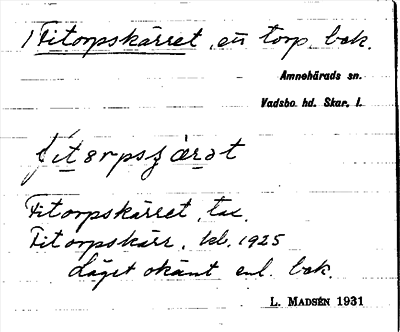 1 Fitorpskärret, ett torp, bek.
Amnehärads sn.
Vadsbo hd. Skar. l.
Fitorpskärret, tax.
Fitorpskärr, kb. 1925
Läget okänt enl. bek.
L. MADSÉN 1931